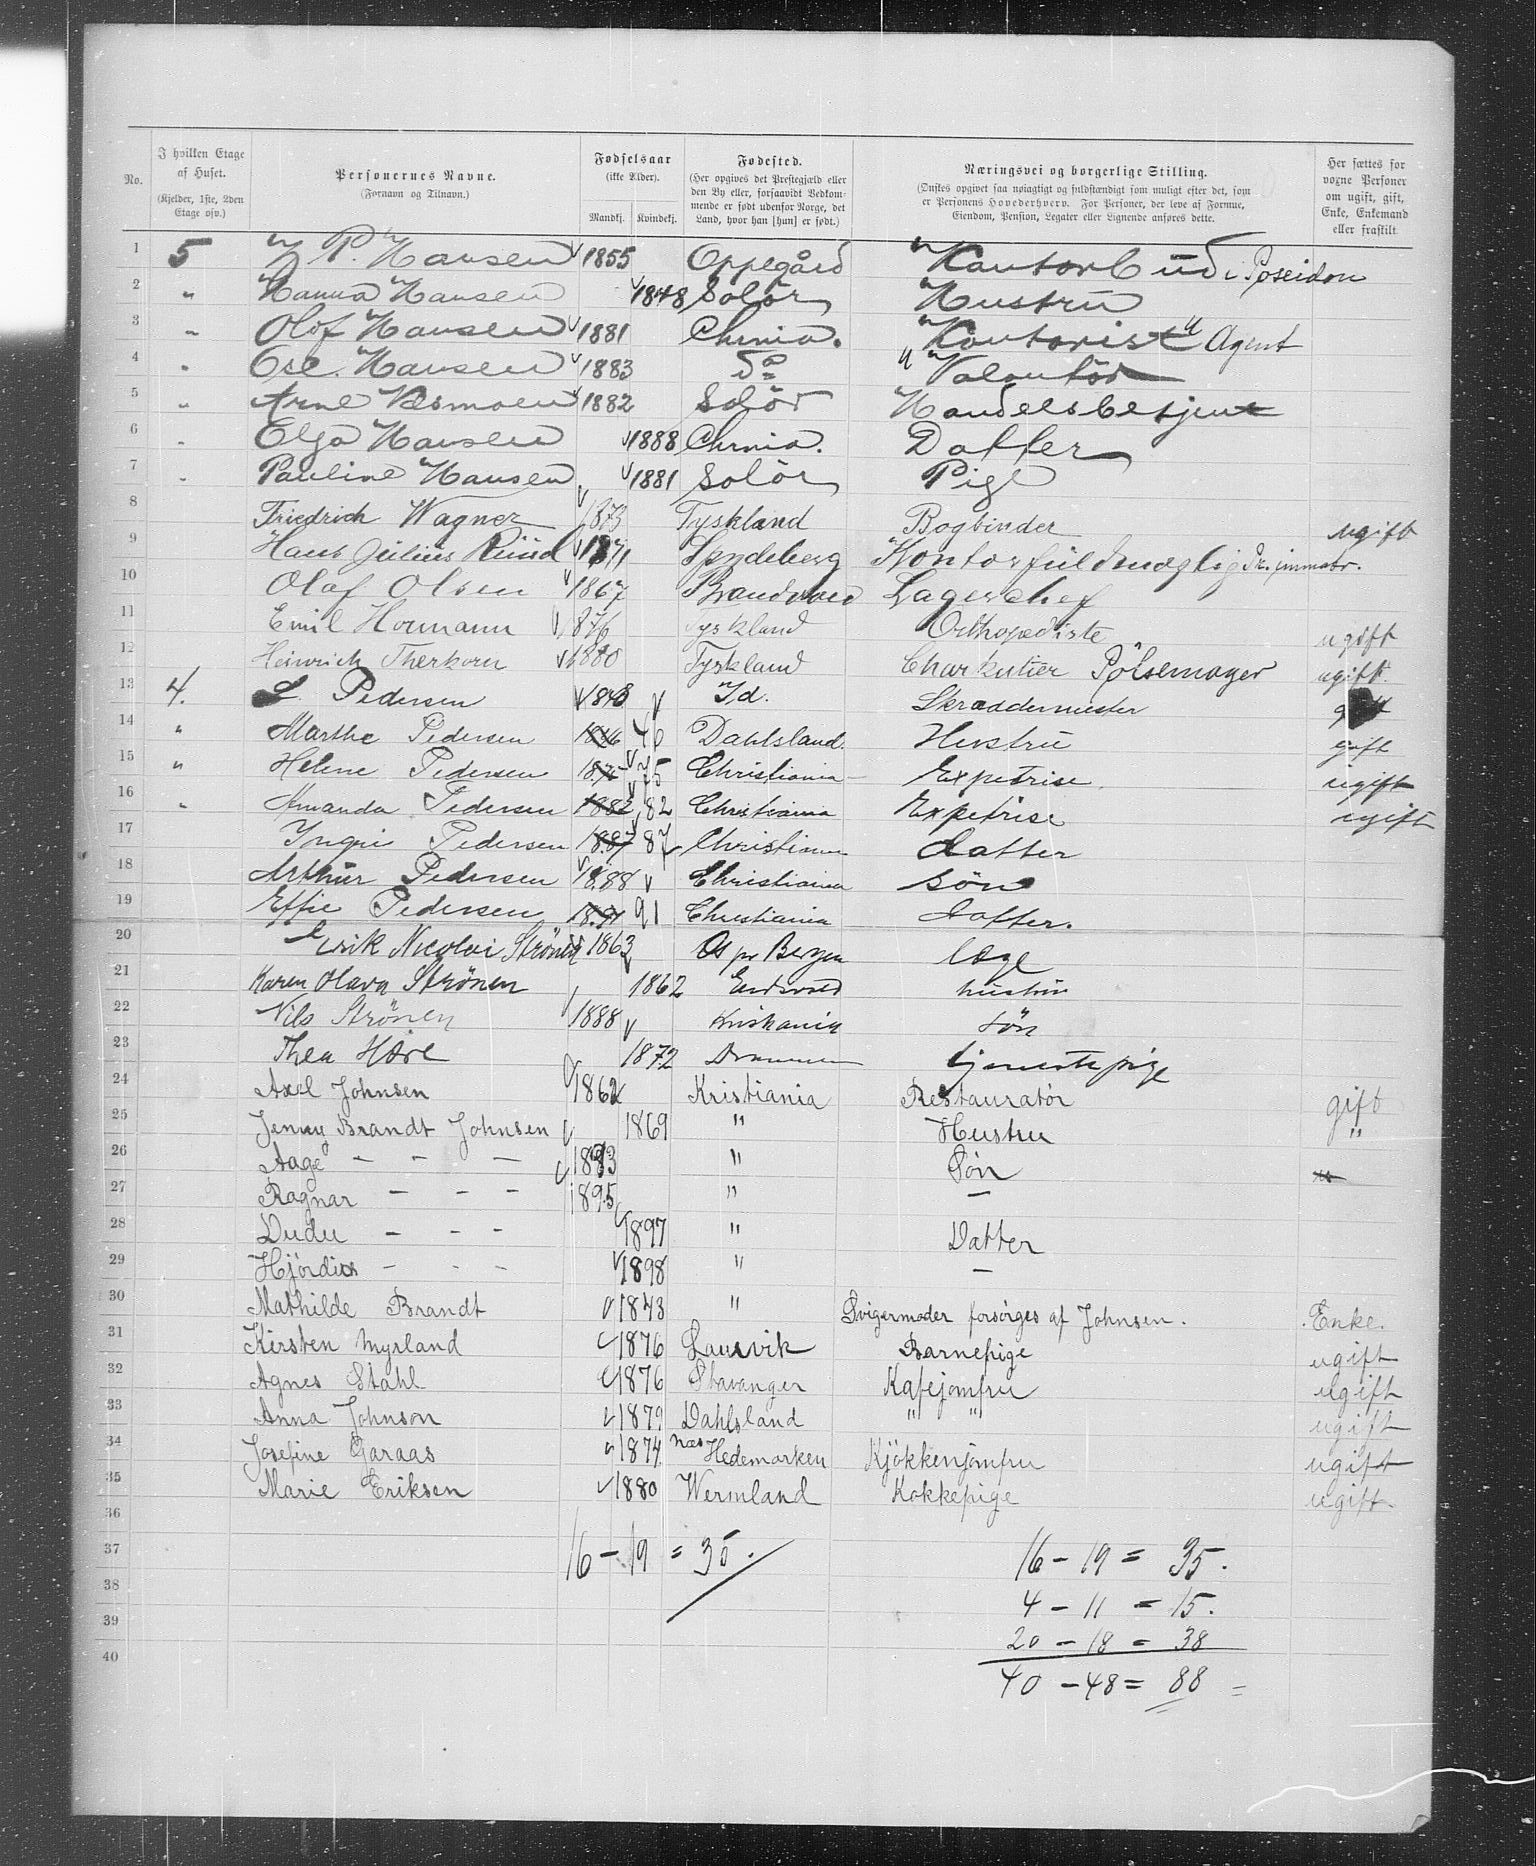 No.
I hvilken Etage af Huset.
(Kjelder, 1ste, 2den Etage osv.)
Personernes Navne.
(Fornavn og Tilnavn.)
Fødselsaar
(ikke Alder).
Mandkj. Kvindekj.
Fødested.
(Her opgives det Prestegjæld eller den By eller, forsaavidt Vedkommende er født udenfor Norge, det Land, hvor han [hun] er født.)
Næringsvei og borgerlige Stilling.
(Ønskes opgivet saa nøiagtigt og fuldstændigt som muligt efter det, som er Personens Hovederhverv. For Personer, der leve af Formue, Eiendom, Pension, Legater eller Lignende anføres dette.
Her sættes for voxne Personer om ugift, gift, Enke, Enkemand eller fraskilt.
1 5 P. Hansen 1855 Oppegård Kontorbud i Poseidon
2 " Hanna Hansen 1848 Solör Hustru
3 " Olof Hansen 1881 Chrnia. Kontorist Agent
4 " Ose Hansen 1883 do Volontör
5 " Arne Vesmoen 1882 Solör Handelsbetjent
6 " Olga Hansen 1888 Chrnia. Datter
7 " Pauline Hansen 1881 Solör Pige
8 Friedrich Wagner 1873 Tyskland Bogbinder ugift
9 Hans Julius Ruud 1871 Spydeberg Kontorfuldmægtig
10 Olaf Olsen 1867 Brandvold Lagerchef
11 Emil Hormann 1876 Tyskland Orthopædiste ugift
12 Heinrich Therkorn 1880 Tyskland Charkutier Pölsemager ugift.
13 4. L Pedersen 1843 Id. Skræddermester
14 " Marthe Pedersen 1846 46 Dahlsland Hustru gift
15 " Helene Pedersen 1875 75 Christiania Expetrise ugift
16 " Amanda Pedersen 1882 82 Christiania Expetrise ugift
17 Yngri Pedersen 1887 87 Christiania datter
18 Arthur Pedersen 1888 Christiania sön
19 Effie Pedersen 1891 91 Christiania datter.
20 Erik Nicolai Strönen 1863 Os pr Bergen læge
21 Karen Olava Strönen 1862 Eidsvold hustru
22 Nils Strönen 1888 Kristiania sön
23 Thea 1872 Drammen tjenestepige
24 Axel Johnsen 1862 Kristiania Restauratör gift
25 Jenny Brandt Johnsen 1869 " Hustru "
26 Aage — — — 1893 " Sön
27 Ragnar — — — 1895 " —
28 Dudu — — — 1897 " Datter
29 Hjördis — — — 1898 " —
30 Mathilde Brandt 1843 " Svigermoder forsörges af Johnsen. Enke.
31 Kirsten Myrland 1876 Laurvik Barnepige ugift
32 Agnes Stahl 1876 Stavanger Kafejomfru ugift
33 Anna Johnson 1879 Dahlsland " " ugift
34 Josefine Garaas 1874 Næs Hedemarken Kjökkenjomfru ugift
35 Marie Eriksen 1880 Wermland Kokkepige ugift.
36
37 16 — 19 = 35. 16 — 19 = 35.
38 4 — 11 = 15.
39 20 — 18 = 38
40 40 — 48 = 88